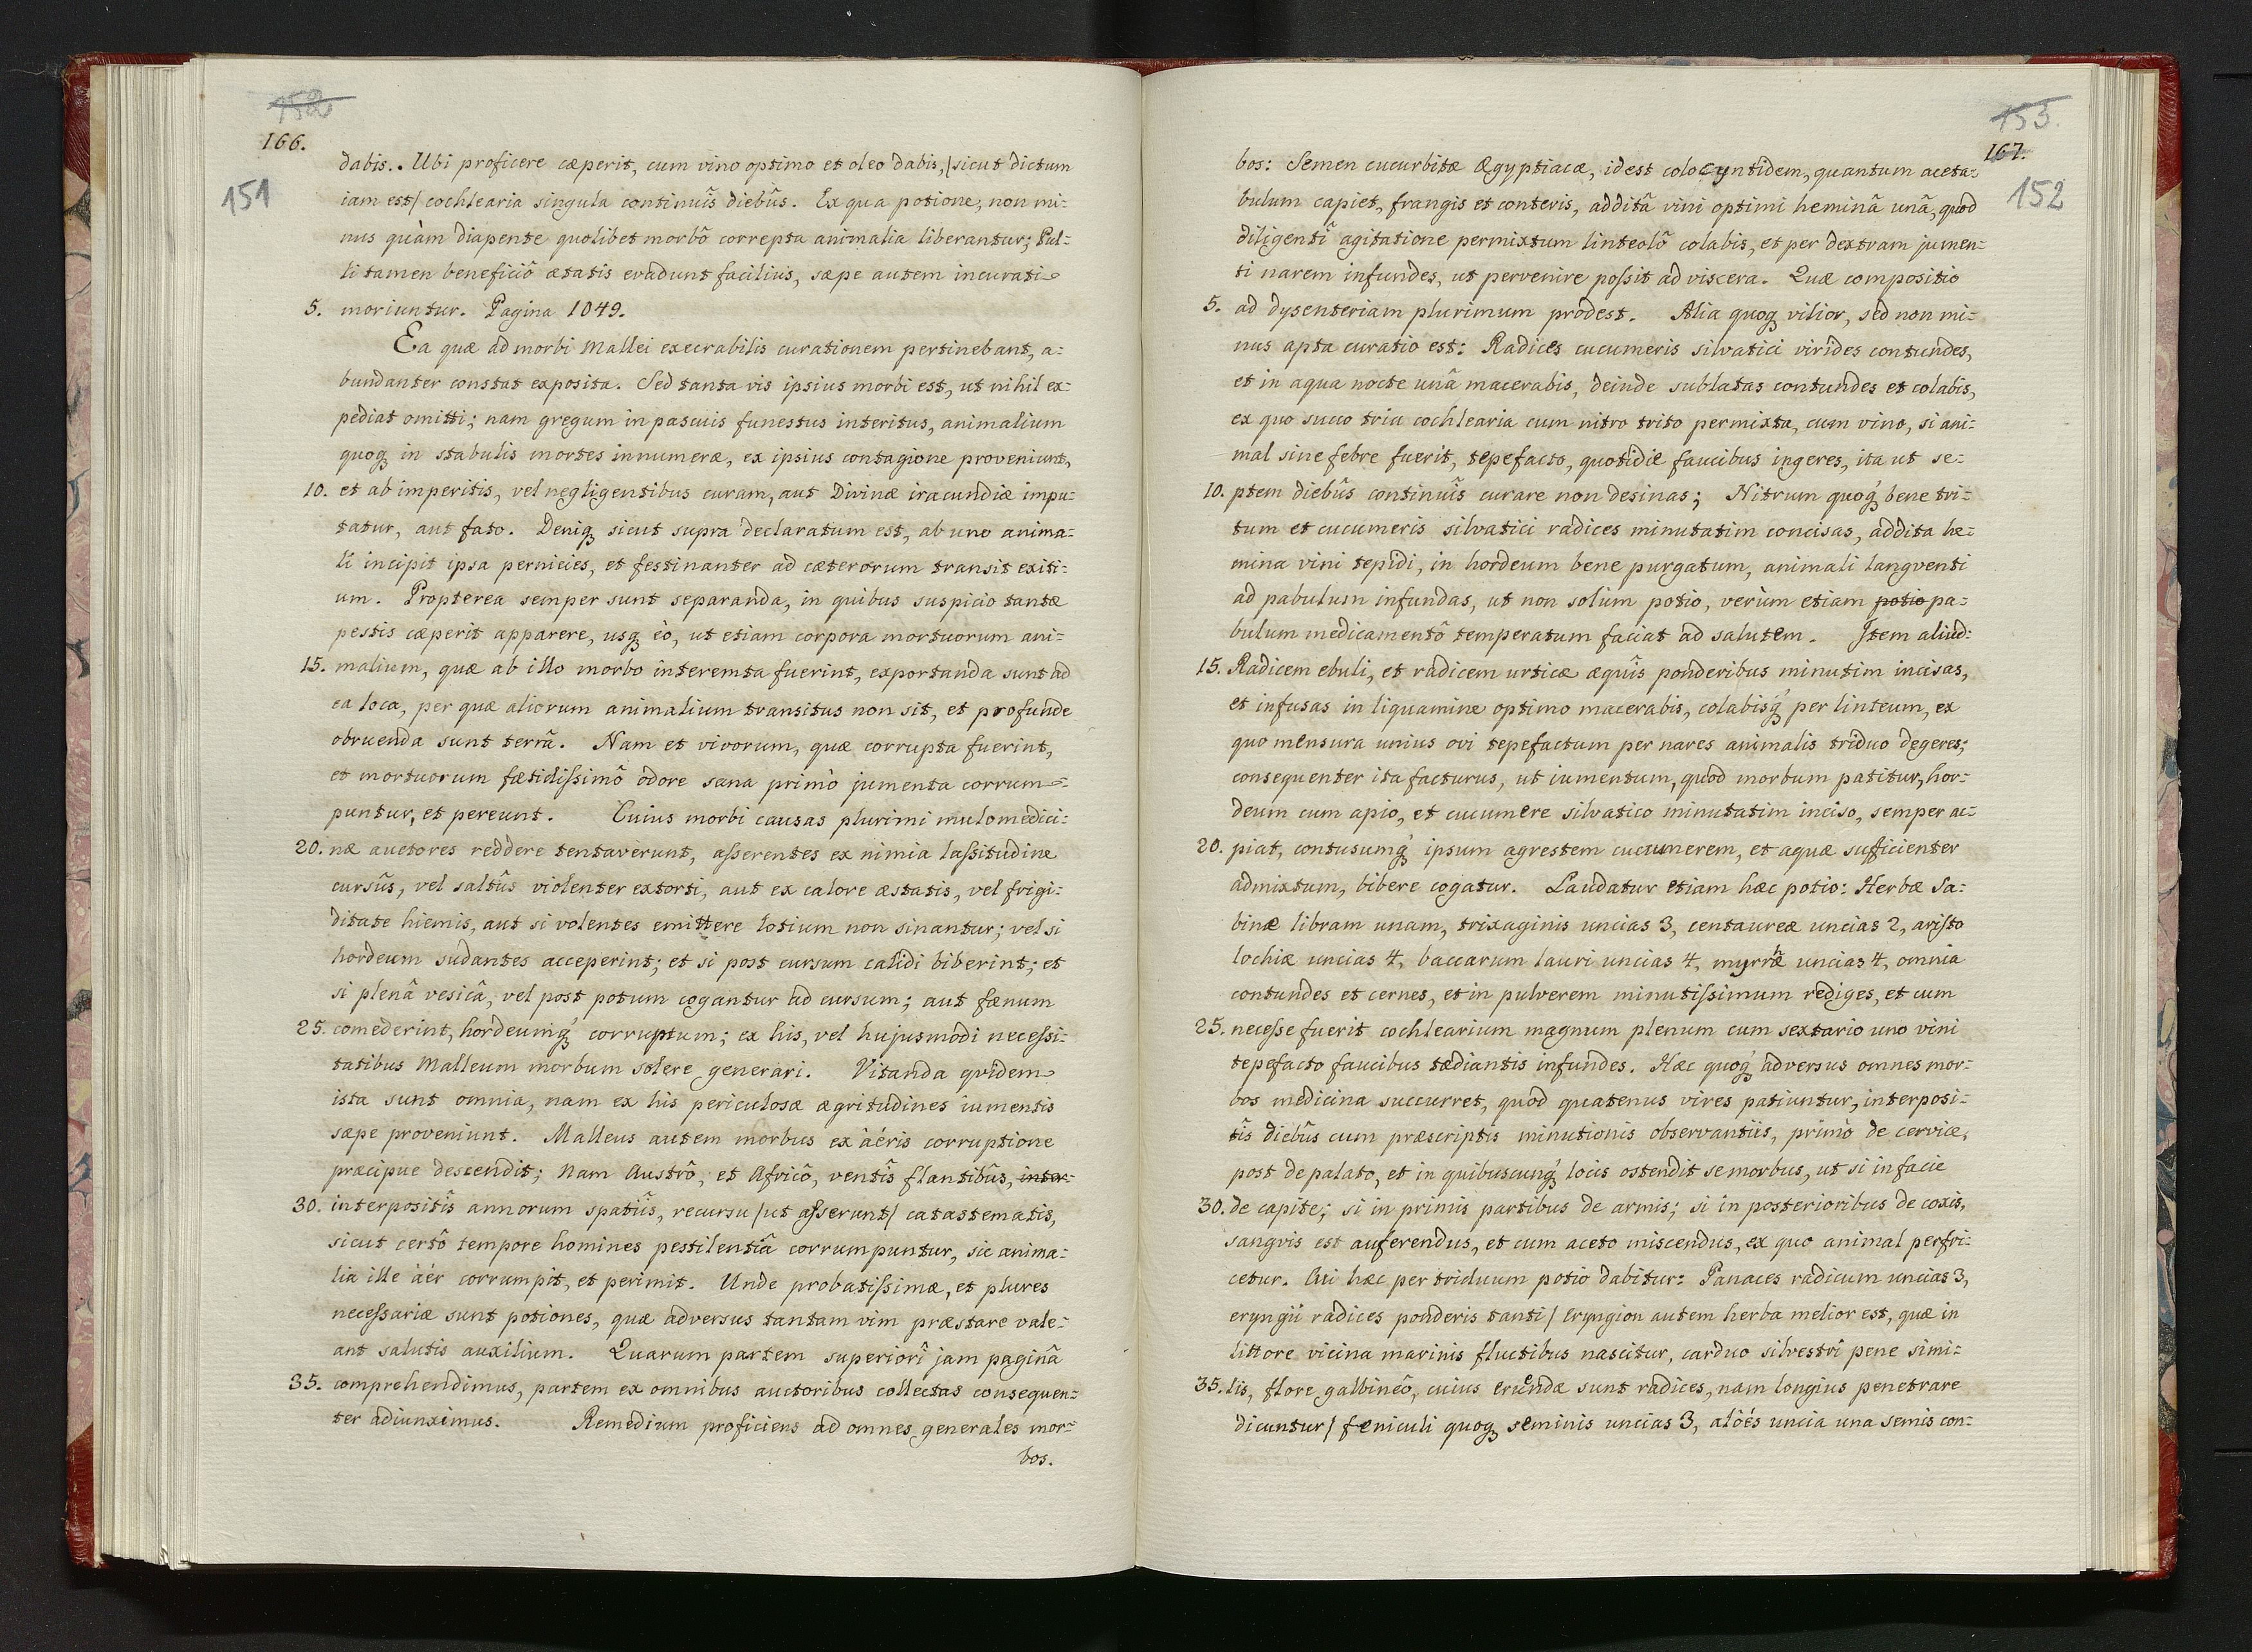 152
166.
151
dabis.. Ubi proficere cæperit, cum vino optimo et oleo dabis, /sicut dictum
iam est/ cochlearia singula continuîs diebûs. Ex qua potione, non mi=
nus quàm diapente quolibet morbô correpta animalia liberantur; Pul=
li tamen beneficiô ætatis evadunt facilius, sæpe autem incurati
5. moriuntur. Pagina 1049.
Ea quæ ad morbi Mallei execrabilis curationem pertinebant, a=
bundanter constat exposita. Sed tanta vis ipsius morbi est, ut nihil ex=
pediat omitti; nam gregum in pascuis funestus interitus, animalium
quoq̢ in stabulis mortes innumeræ, ex ipsius contagione proveniunt,
10. et ab imperitis, vel negligentibus curam, aut Divinæ iracundiæ impu=
tatur, aut fato. Deniq̢ sicut supra declaratum est, ab uno anima=
li incipit ipsa pernicies, et festinanter ad cæterorum transit exiti=
um. Propterea semper sunt separanda, in quibus suspicio tantæ
pestis cæperit apparere, usq̢ èo, ut etiam corpora mortuorum ani=
15. malium, quæ ab illo morbo interemta fuerint, exportanda sunt ad
ea loca, per quæ aliorum animalium transitus non sit, et profunde
obruenda sunt terrâ. Nam et vivorum, quæ corrupta fuerint,
et mortuorum fætidissimô odore sana primò jumenta corrum=
puntur, et pereunt. Cuius morbi causas plurimi mulomedici=
20. næ auctores reddere tentaverunt, asserentes ex nimia lassitudine
cursûs, vel saltûs violenter extorti, aut ex calore æstatis, vel frigi=
ditate hiemis, aut si volentes emittere lotium non sinantur; vel si
hordeum sudantes acceperint; et si post cursum calidi biberint; et
si plenâ vesicâ, vel post potum cogantur ad cursum; aut fænum
25. comederint, hordeumq̢́ corruptum; ex his, vel hujusmodi necessi=
tatibus Malleum morbum solere generari. Vitanda qvidem
ista sunt omnia, nam ex his periculosæ ægritudines iumentis
sæpe proveniunt. Malleus autem morbus ex àéris corruptione
præcipue descendit; Nam Austrô, et Africô, ventîs flantibûs, inter=
30. interpositîs annorum spatiîs, recursu /ut asserunt/ catastematis,
sicut certô tempore homines pestilentiâ corrumpuntur, sic anima=
lia ille àér corrumpit, et perimit. Unde probatissimæ, et plures
necessariæ sunt potiones, quæ adversus tantam vim præstare vale=
ant salutis auxilium. Quarum partem superiorî jam paginâ
35. comprehendimus, partem ex omnibus auctoribus collectas consequen=
ter adiunximus. Remedium proficiens ad omnes generales mor=
bos.
153.
167.
152
bos: Semen cucurbitæ Ægyptiacæ, idest colocyntidem, quantum aceta=
bulum capiet, frangis et conteris, additâ vini optimi heminâ unâ, quod
diligentî agitatione permixtum linteolô colabis, et per dextram jumen=
ti narem infundes, ut pervenire possit ad viscera. Quæ compositio
5. ad dysenteriam plurimum prodest. Alia quoq̢ vilior, sed non mi=
nus apta curatio est: Radices cucumeris silvatici virides contundes,
et in aqua nocte unâ macerabis, deinde sublatas contundes et colabis,
ex quo succo tria cochlearia cum nitro trito permixta, cum vino, si ani=
mal sine febre fuerit, tepefacto, quotidiè faucibus ingeres, ita ut se=
10. ptem diebûs continuîs curare non desinas; Nitrum quoq̢́ bene tri=
tum et cucumeris silvatici radices minutatim concisas, addita he=
mina vini tepidi, in hordeum bene purgatum, animali langventi
ad pabulum infundas, ut non solùm potio, verùm etiam potio pa=
bulum medicamentô temperatum faciat ad salutem. Item aliud:
15. Radicem ebuli, et radicem urticæ æquîs ponderibus minutim incisas,
et infusas in liquamine optimo macerabis, colabisq̢́ per linteum, ex
quo mensura unius ovi tepefactum per nares animalis triduo degeres;
consequenter ita facturus, ut iumentum, quod morbum patitur, hor=
deum cum apio, et cucumere silvatico minutatim inciso, semper ac=
20. piat, contusumq̢́ ipsum agrestem cucumerem, et aquæ sufficienter
admixtum, bibere cogatur. Laudatur etiam hæc potio: Herbæ Sa=
binæ libram unam, trixaginis uncias 3, centaureæ uncias 2, aristo
lochiæ uncias 4, baccarum lauri uncias 4, myrrhæ uncias 4, omnia
contundes et cernes, et in pulverem minutissimum rediges, et cum
25. necesse fuerit cochlearium magnum plenum cum sextario uno vini
tepefacto faucibus tædiantis infundes. Hæc quoq̢́ adversus omnes mor=
bos medicina succurret, quòd quatenus vires patiuntur, interposi=
tîs diebûs cum præscriptis minutionis observantiis, primò de cervice,
post de palato, et in quibuscunq̢́ locis ostendit se morbus, ut si in facie
30. de capite; si in primis partibus de armis; si in posterioribus de coxis,
sangvis est auferendus, et cum aceto miscendus, ex quo animal perfri=
cetur. Cui hæc per triduum potio dabitur: Panaces radicum uncias 3,
eryngii radices ponderis tanti / eryngion autem herba melior est, quæ in
littore vicina marinis fluctibus nascitur, carduo silvestrî pene simi=
35. lis, flore galbineô, cuius eruendæ sunt radices, nam longius penetrare
dicuntur/ feniculi quoq̢ seminis uncias 3, alöés uncia una semis con=